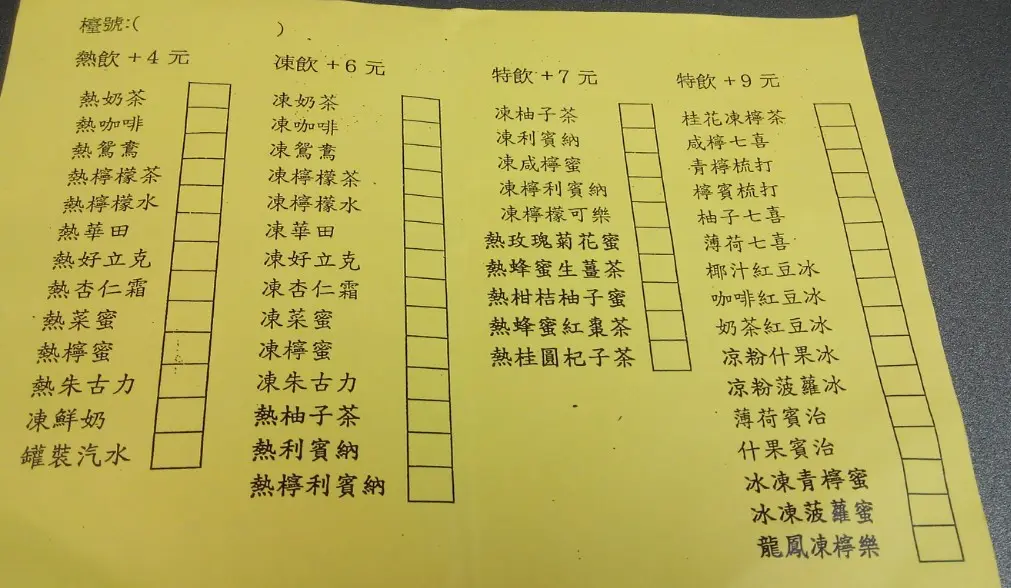 檯號:(                    )
熱飲+4元
熱奶茶
熱咖啡
熱鴛鴦
熱檸檬茶
熱檸檬水
熱華田
熱好立克
熱杏仁霜
熱菜蜜
熱檸蜜
熱朱古力
凍鮮奶
罐裝汽水
凍飲+6元
凍奶茶
凍咖啡
凍鴛鴦
凍檸檬茶
凍檸檬水
凍華田
凍好立克
凍杏仁霜
凍菜蜜
凍檸蜜
凍朱古力
熱柚子茶
熱利賓納
熱檸利賓納
特飲+7元
凍柚子茶
凍利賓納
凍咸檸蜜
凍檸利賓納
凍檸檬可樂
熱玫瑰菊花蜜
熱蜂蜜生薑茶
熱柑桔柚子蜜
熱蜂蜜紅棗茶
熱桂圓杞子茶
特飲+9元
桂花凍檸茶
咸檸七喜
青檸梳打
檸賓梳打
柚子七喜
薄荷七喜
椰汁紅豆冰
咖啡紅豆冰
奶茶紅豆冰
凉粉什果冰
凉粉菠蘿冰
薄荷賓治
什果賓治
冰凍青檸蜜
冰凍菠蘿蜜
龍鳳凍檸樂